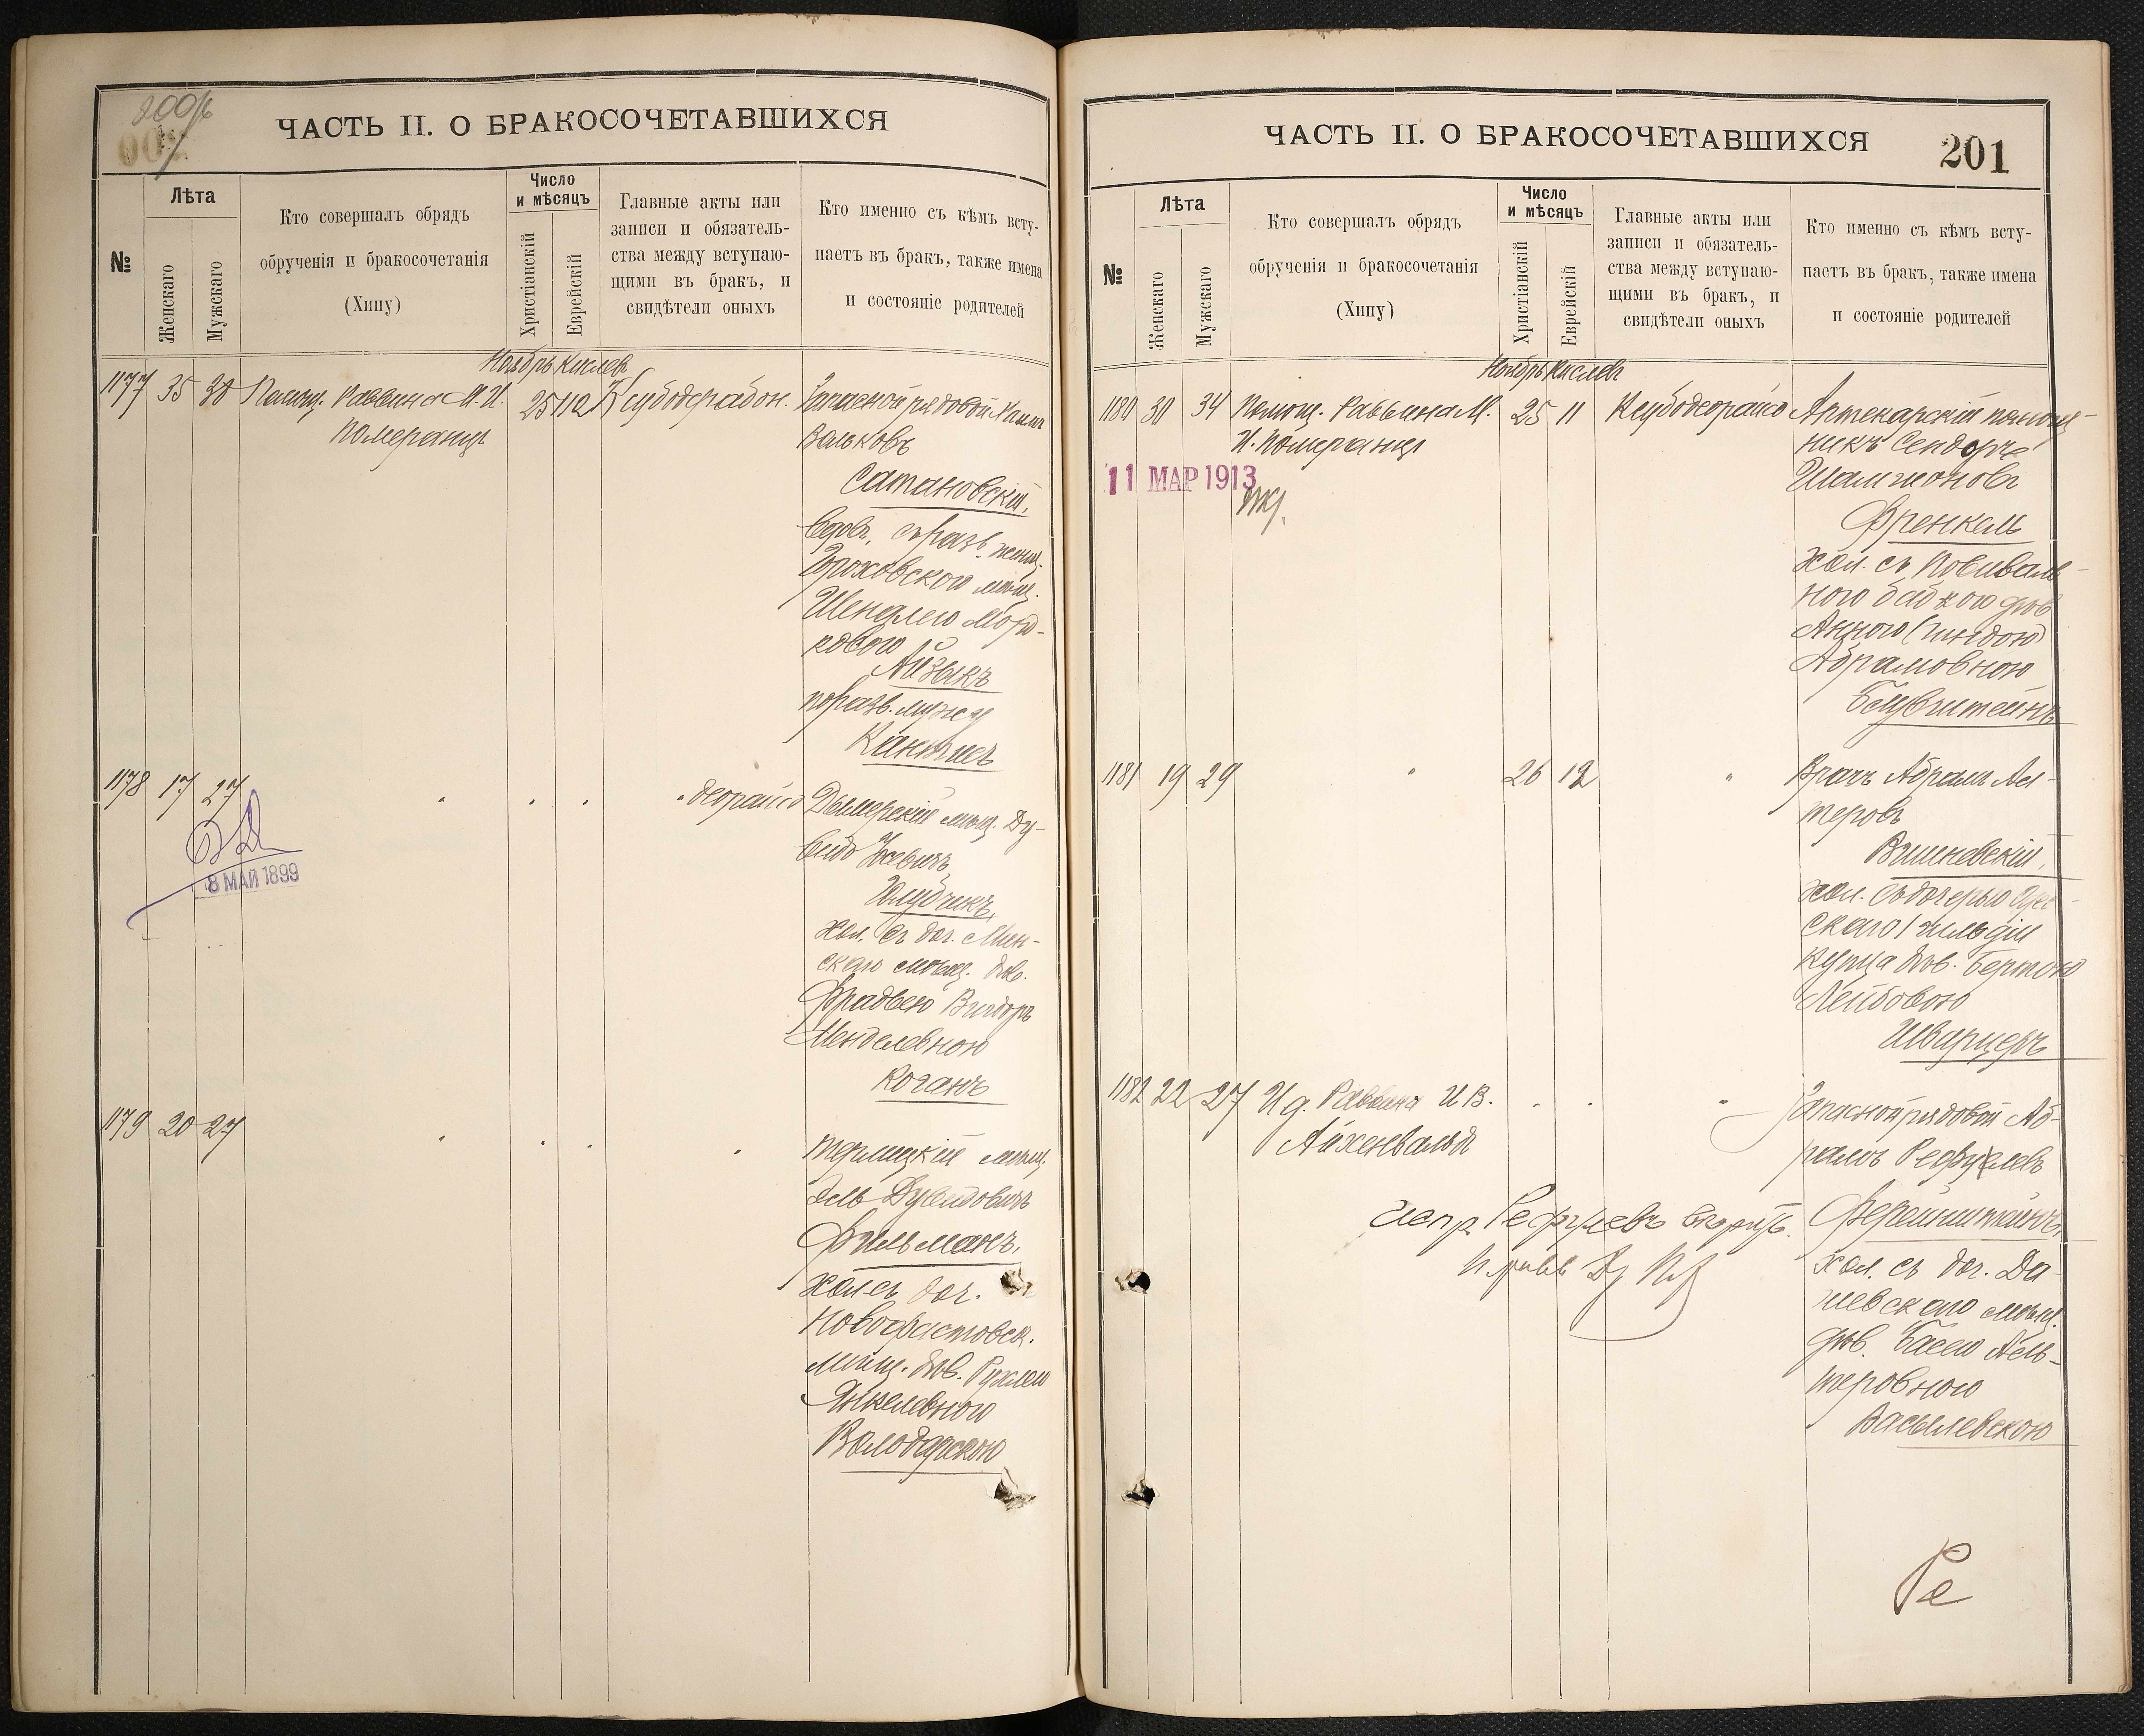 200/б
ЧАСТЬ II. О БРАКОСОЧЕТАВШИХСЯ
№
Лѣта
Женскаго
Мужскаго
Кто совершалъ обрядъ
обрученія и бракосочетанія
(Хипу)
Число
и мѣсяцъ
Христіанскій
Еврейскій
Главные акты или
записи и обязатель-
ства между вступаю-
щими въ бракъ, и
свидѣтели оныхъ
Кто именно съ кѣмъ всту-
паетъ въ бракъ, также имена
и состояніе родителей
Ноябрь Кислев
1177 35 38 Помощ. Раввина М. И.
Померанцъ
25 11 Ксубодерабон.
Запасной рядовой
Вольковъ
Сатановскій,
вдов. съ разв. женщ.
Гороховского мѣщ.
Шендлею Морд-
ковою
Айзыкъ
по разв. мужу
1178 17 27 " " " "деорайсо
8 МАЙ 1899
Дымерскій мѣщ. Ду-
видъ
Голубчикъ,
хол. съ доч. Мин-
скаго мѣщ. дѣв.
Фрадьею Вигдоръ
Менделевною
Коганъ
1179 20 27 " " " "
мѣщ.
Дувидовичъ
Фильманъ,
хол. съ доч.
Новофастовск.
мѣщ. дѣв. Рухлею
Янкелевною
Володарскою
ЧАСТЬ II. О БРАКОСОЧЕТАВШИХСЯ
201
№
Лѣта
Женскаго
Мужскаго
Кто совершалъ обрядъ
обрученія и бракосочетанія
(Хипу)
Число
и мѣсяцъ
Христіанскій
Еврейскій
Главные акты или
записи и обязатель-
ства между вступаю-
щими въ бракъ, и
свидѣтели оныхъ
Кто именно съ кѣмъ всту-
паетъ въ бракъ, также имена
и состояніе родителей
Ноябрь Кислев
1180 30 34 Помощ. Раввина М.
И. Померанцъ
25 11 Ксубодеорайсо
11 МАР 1913
Аптекарскій помощ-
никъ Сендоръ
Шамшоновъ
Френкель
хол. съ повиваль-
ною бабкою дѣв.
Анною (Гиндою)
Абрамовною
1181 19 29 " 26 12 "
Врачъ Абрамъ Ал-
теровъ
Вишневскій,
хол. съ дочерью
скаго 1 гильдіи
купца дѣв. Бертою
Лейбовою
Шварцеръ
1182 22 27 И. д. Раввина И. В.
Айхенвальд
" " "
Запасной рядовой Аб-
рамъ Рефулевъ
Ференштейнъ,
хол. съ доч. Да-
шевскаго мѣщ.
дѣв. Басею Аль-
теровною
Васылевскою
испр Рефулевъ вѣрить.
И. равв.
Ре